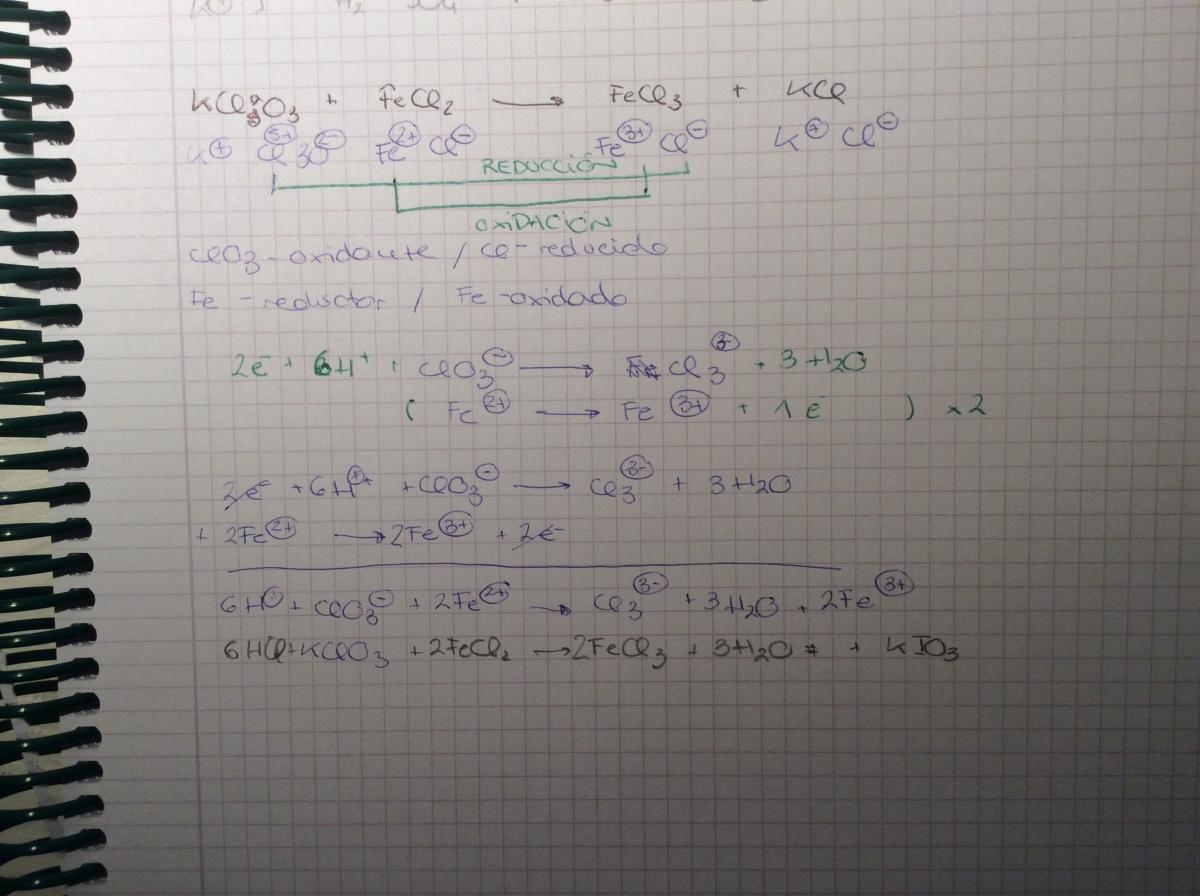 KClO₃ + FeCl₂ → FeCl₃ + KCl
K⁺ Cl⁵⁺ 3O⁻ Fe²⁺ Cl⁻ Fe³⁺ Cl⁻ K⁺ Cl⁻
REDUCCIÓN
OXIDACIÓN
ClO₃ - oxidante / Cl - reducido
Fe - reductor / Fe - oxidado
2e⁻ + 6H⁺ + ClO₃⁻ → Cl₃³⁻ + 3H₂O
( Fe²⁺ → Fe³⁺ + 1e⁻ ) x2
2e⁻ + 6H⁺ + ClO₃⁻ → Cl₃³⁻ + 3H₂O
+ 2Fe²⁺ → 2Fe³⁺ + 2e⁻
6H⁺ + ClO₃⁻ + 2Fe²⁺ → Cl₃³⁻ + 3H₂O + 2Fe³⁺
6HCl + KClO₃ + 2FeCl₂ → 2FeCl₃ + 3H₂O + KIO₃